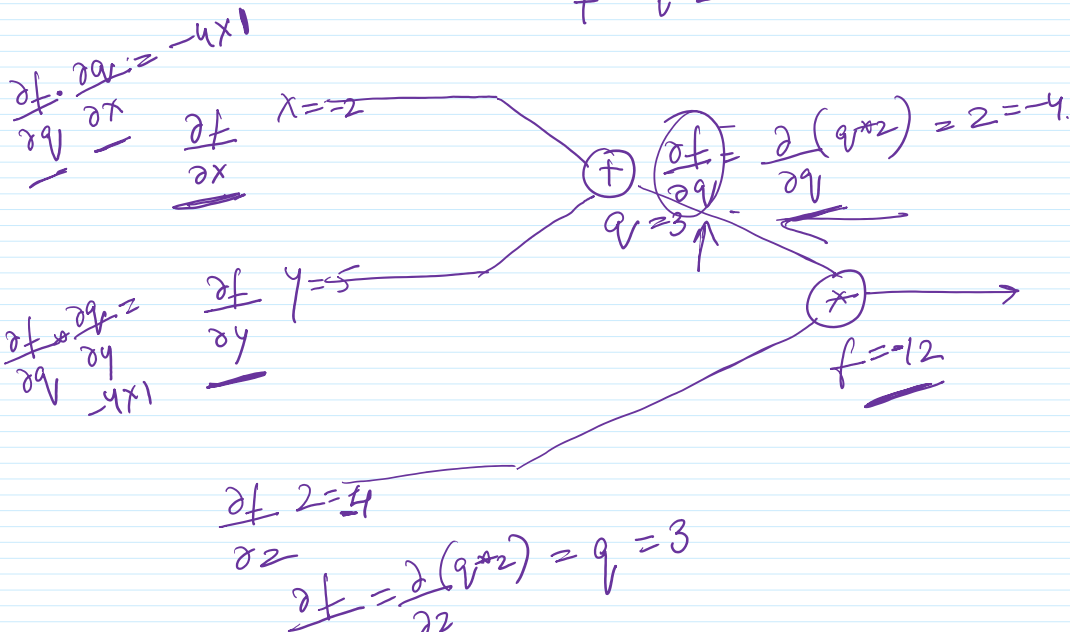 ∂f/∂q · ∂q/∂x = -4×1
∂f/∂x
x = -2
+
q = 3
∂f/∂q = ∂/∂q (q*z) = z = -4.
∂f/∂q * ∂q/∂y = -4×1
∂f/∂y
y = 5
*
f = -12
∂f/∂z
z = -4
∂f = ∂(q*z)/∂z = q = 3